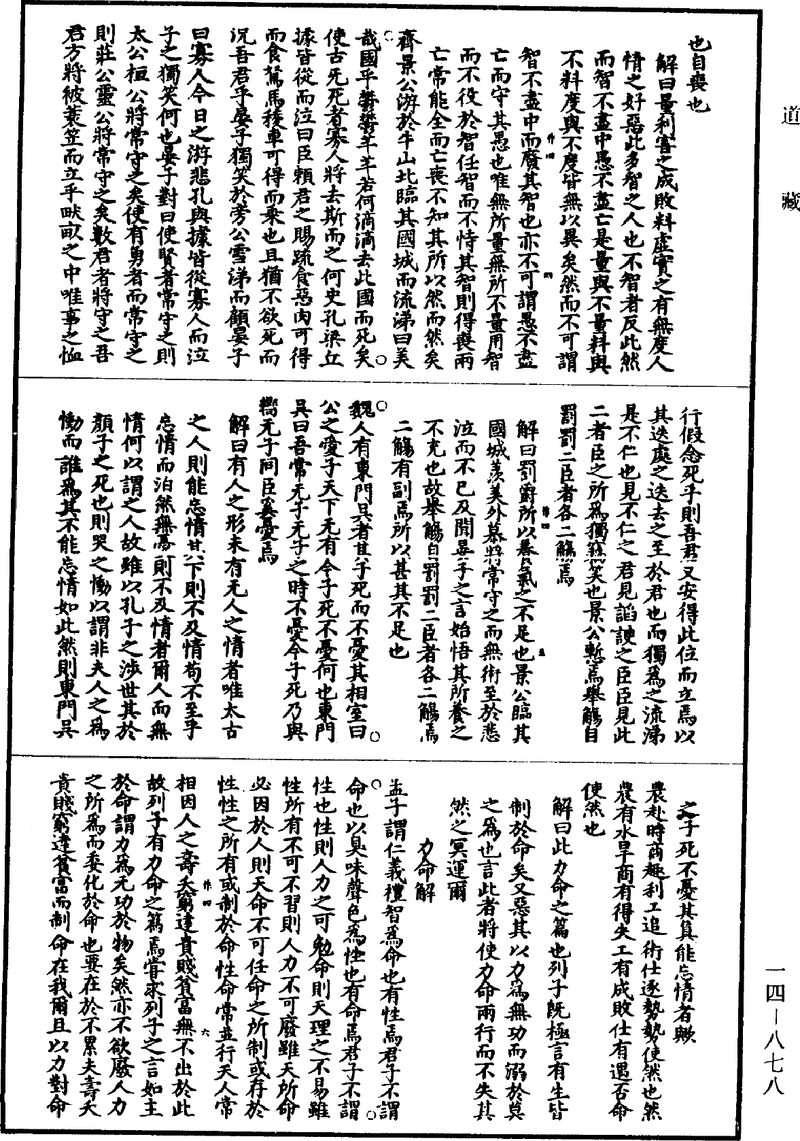 道藏
也自喪也
解曰量利害之成敗料虛實之有無度人
情之好惡此多智之人也不智者反此然
而智不盡中愚不盡亡是量與不量料與
不料度與不度皆無以異矣然而不可謂
智不盡中而廢其智也亦不可謂愚不盡
亡而守其愚也唯無所量無所不量用智
而不役於智任智而不恃其智則得喪兩
亡常能全而亡喪不知其所以然而然矣
齊景公游於牛山北臨其國城而流涕曰美
哉國乎鬱鬱芊芊若何滴滴去此國而死矣
使古无死者寡人將去斯而之何史孔梁丘
據皆從而泣曰臣賴君之賜疏食惡肉可得
而食駑馬稜車可得而乘也且猶不欲死而
況吾君乎晏子獨笑於旁公雪涕而顧晏子
曰寡人今日之游悲孔與據皆從寡人而泣
子之獨笑何也晏子對曰使賢者常守之則
太公桓公將常守之矣使有勇者而常守之
則莊公靈公將常守之矣數君者將守之吾
君方將被蓑笠而立乎畎畝之中唯事之恤
行假念死乎則吾君又安得此位而立焉以
其迭處之迭去之至於君也而獨為之流涕
是不仁也見不仁之君見諂諛之臣臣見此
二者臣之所為獨竊笑也景公慙焉舉觴自
罰罰二臣者各二觴焉
解曰罰爵所以養氣之不足也景公臨其
國城羨美外慕將常守之而無術至於悲
泣而不已及聞晏子之言始悟其所養之
不充也故舉觴自罰罰二臣者各二觴焉
二觴有副焉所以甚其不足也
魏人有東門吳者其子死而不憂其相室曰
公之愛子天下无有今子死不憂何也東門
吳曰吾常无子无子之時不憂今子死乃與
嚮无子同臣奚憂焉
解曰有人之形未有无人之情者唯太古
之人則能忘情其下則不及情苟不至乎
忘情而泊然無憂則不及情者爾人而無
情何以謂之人故雖以孔子之涉世其於
顏子之死也則哭之慟以謂非夫人之為
慟而誰為其不能忘情如此然則東門吳
之子死不憂其真能忘情者歟
農赴時商趣利工追術仕逐勢勢使然也然
農有水旱商有得失工有成敗仕有遇否命
使然也
解曰此力命之篇也列子既極言有生皆
制於命矣又惡其以力為無功而溺於莫
之為也言此者將使力命兩行而不失其
然之冥運爾
力命解
孟子謂仁義禮智為命也有性焉君子不謂
命也以臭味聲色為性也有命焉君子不謂
性也性則人力之可勉命則天理之不易雖
性所有不可不習則人力不可廢雖天所命
必因於人則天命不可任命之所制或存於
性性之所有或制於命性命常並行天人常
相因人之壽夭窮達貴賤貧富無不出於此
故列子有力命之篇焉嘗求列子之言如主
於命謂力為无功於物矣然亦不欲廢人力
之所為而委化於命也要在於不累夫壽夭
貴賤窮達貧富而制命在我爾且以力對命
一四—八七八